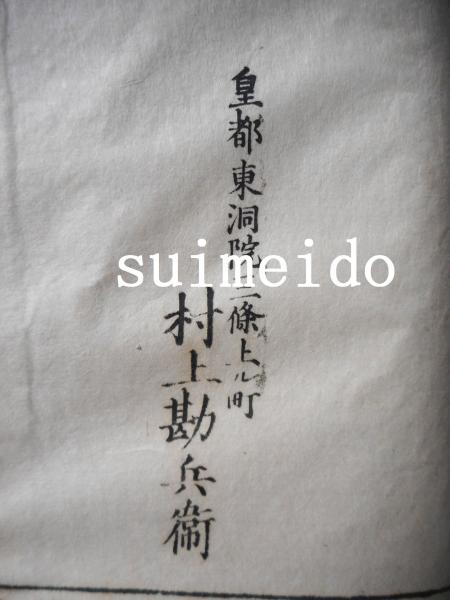 皇都東洞院三條上ル町
suimeido
村上勘兵衞